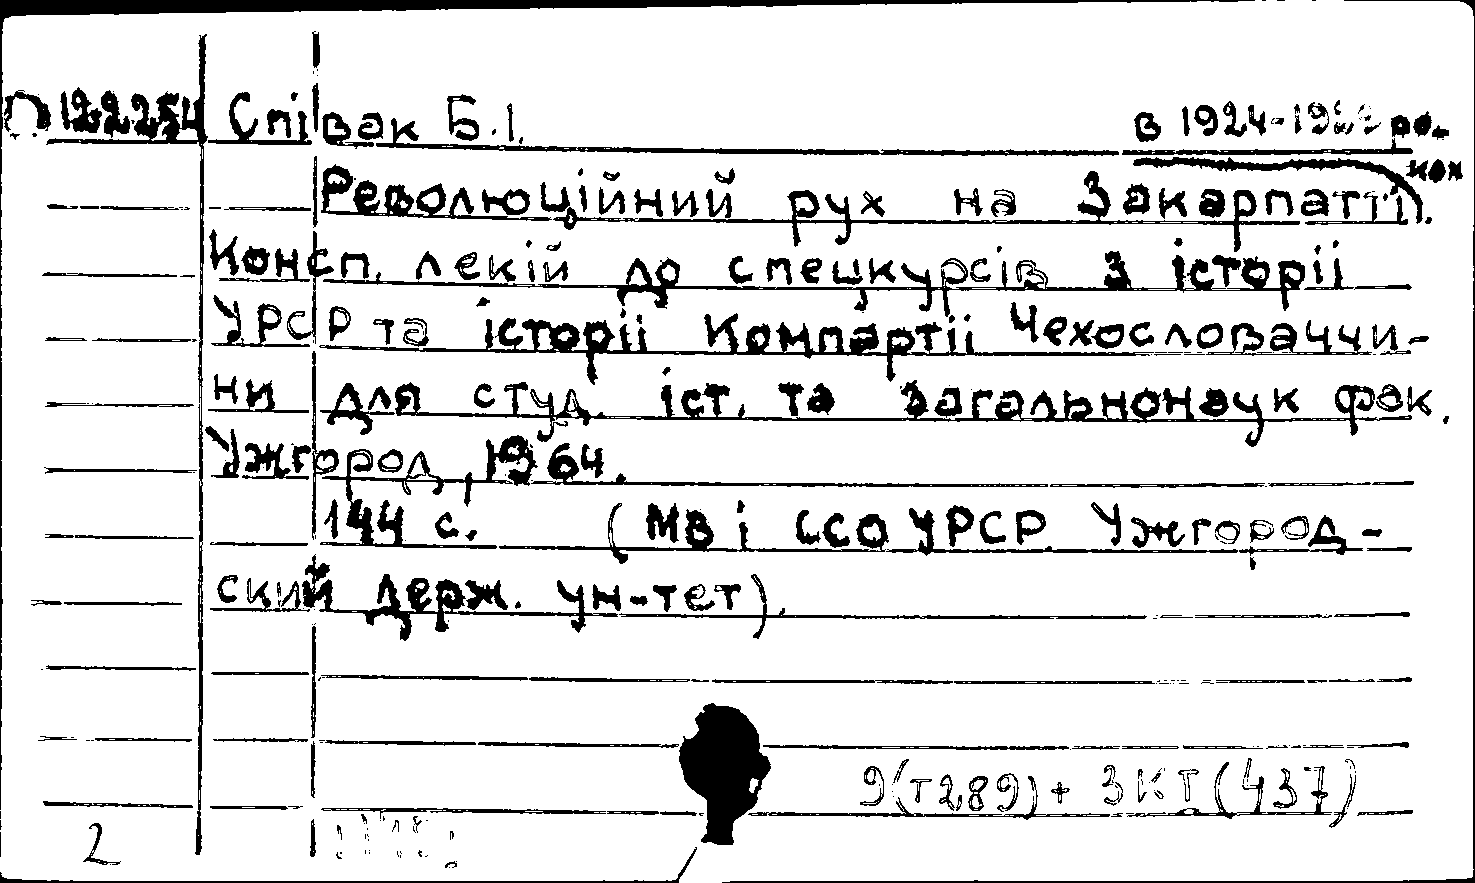 П122254 Співак Б.І.
в 1924-19 ро-
ках
Революційний рух на Закарпатті.
Консп. лекій до спецкурсів з історіі
УРСР та історіі Компартіі Чехословаччи-
ни для студ. іст. та загальнонаук фак.
Ужгород, 1964.
144 с. (МВ і ССО УРСР Ужгород-
ский держ. ун-тет).
9(Т289)+ 3КТ(437)
2